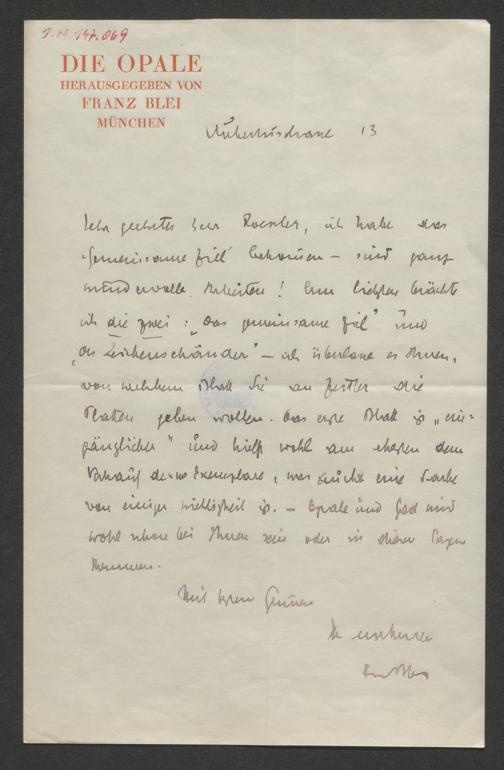 J.N 147.069
DIE OPALE
HERAUSGEGEBEN VON
FRANZ BLEI
MÜNCHEN
13
Sehr geehrter Herr Roessler, ich habe das
"Gemeinsame Ziel" bekommen – sind ganz
wundervolle Arbeiten! Am liebsten brächte
ich die zwei: "Das gemeinsame Ziel" und
"der Leichenschänder" – ich überlasse es Ihnen,
von welchem Blatt Sie an Zeitler die
Platten geben wollen. Das erste Blatt ist "ein-
gänglicher" und hielf wohl am ehesten dem
Verkauf Exemplare, was eine Sache
von einiger Wichtigkeit ist. – Opale und Geld sind
wohl schon bei Ihnen sein oder in diesen Tagen
kommen.
Mit besten Grüssen
Ihr
Blei